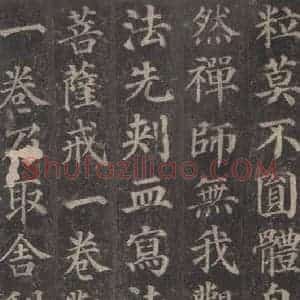 粒莫不圓體自
然禪師無我觀
法先刺血寫法
菩薩戒一卷
一卷乃取舍
shufaziliao.com